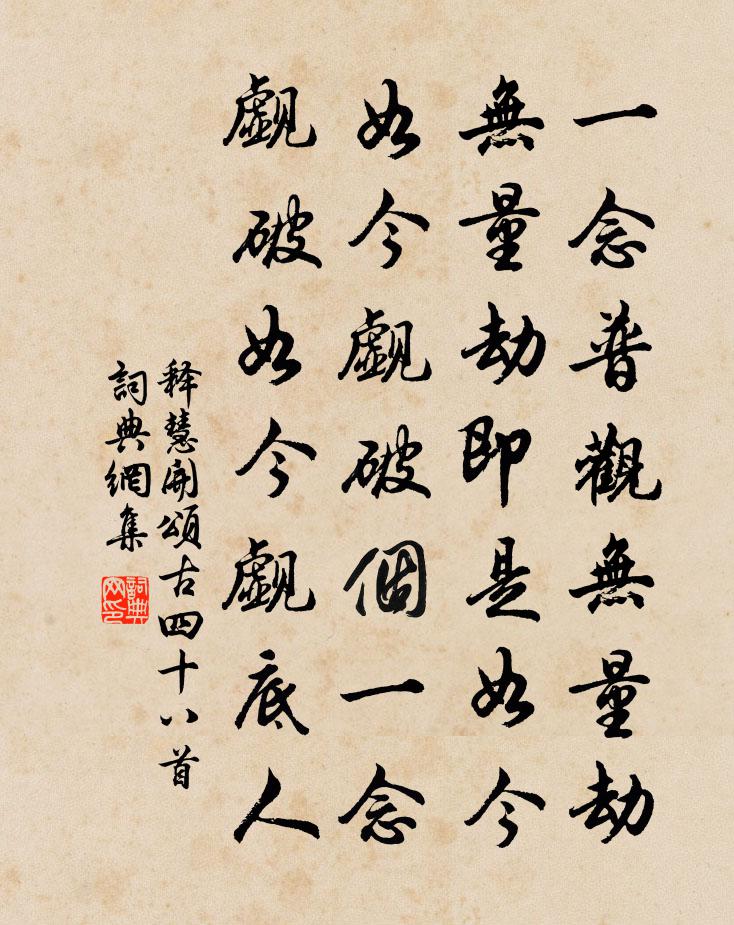 一念普觀無量劫
無量劫即是如今
如今覰破個一念
覰破如今覰底人
释慧開頌古四十八首
詞典網集
詞典网印